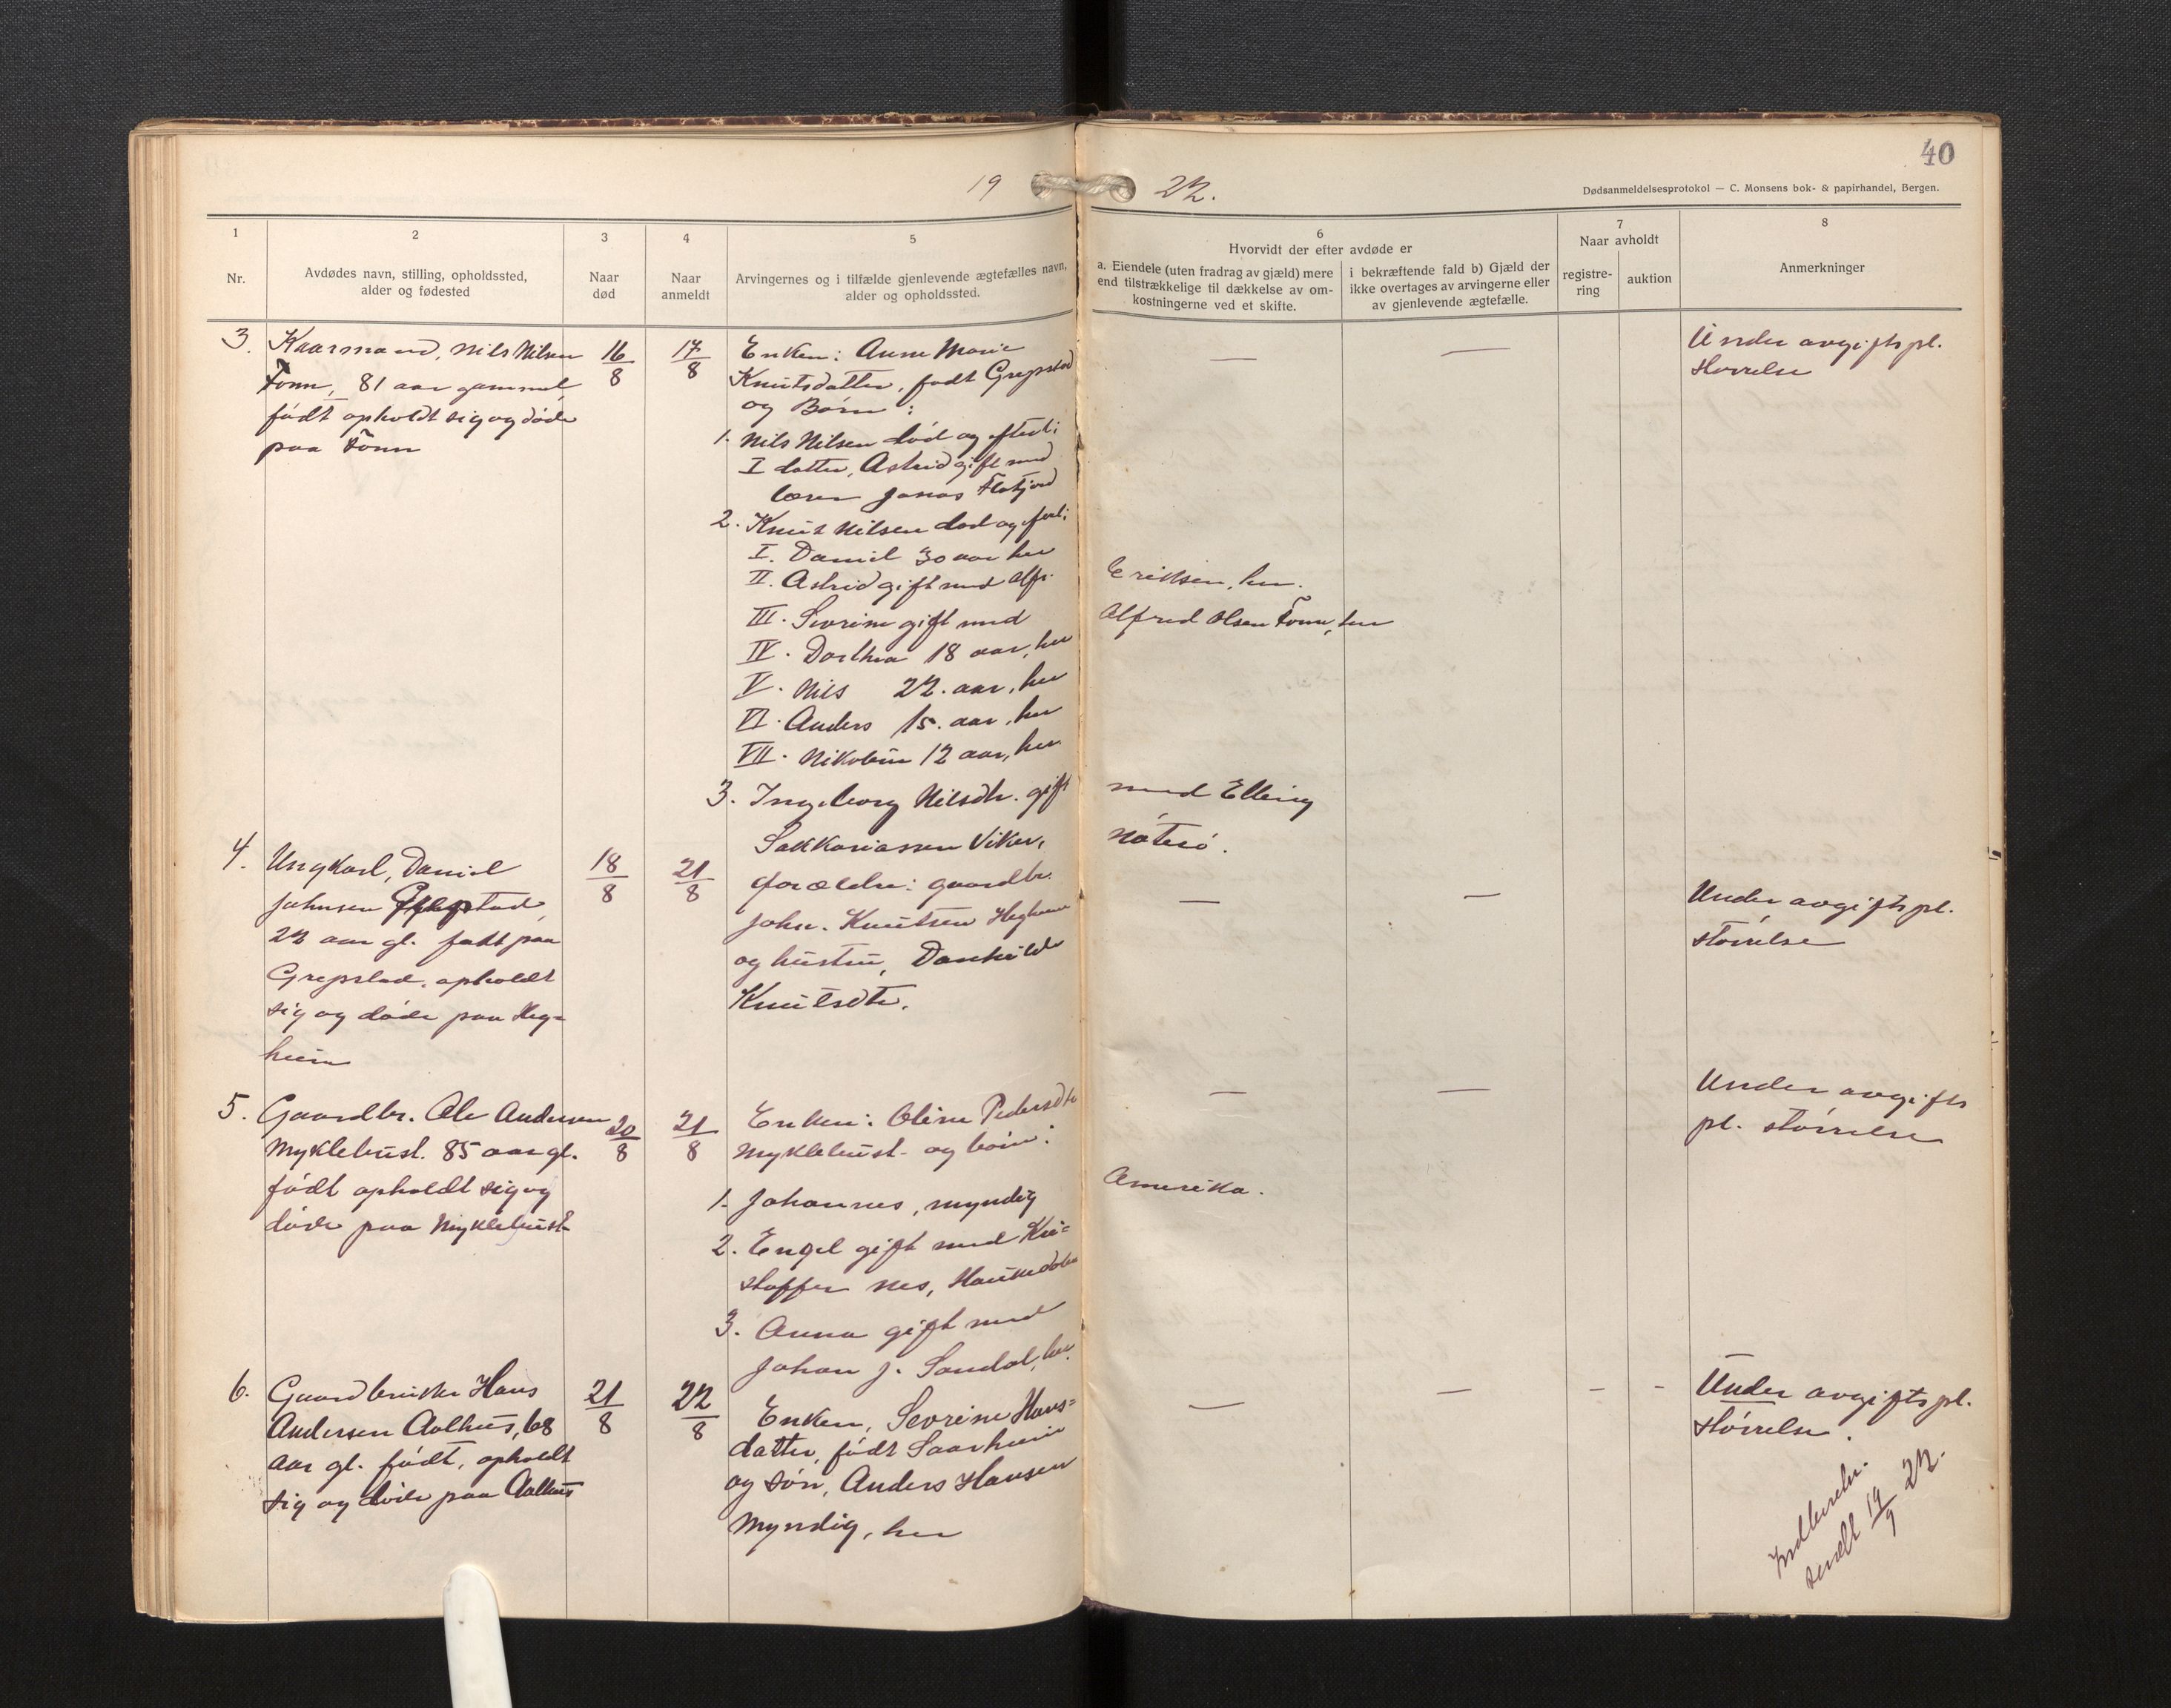 40
19 22.
Dødsanmeldelsesprotokol — C. Monsens bok- & papirhandel, Bergen.
1
Nr.
2
Avdødes navn, stilling, opholdssted,
alder og fødested
3
Naar
død
4
Naar
anmeldt
5
Arvingernes og i tilfælde gjenlevende ægtefælles navn,
alder og opholdssted.
6
Hvorvidt der efter avdøde er
a. Eiendele (uten fradrag av gjæld) mere
end tilstrækkelige til dækkelse av om-
kostningerne ved et skifte.
i bekræftende fald b) Gjæld der
ikke overtages av arvingerne eller
av gjenlevende ægtefælle.
7
Naar avholdt
registre-
ring
auktion
8
Anmerkninger
3.
Kaarmand, Nils Nilsen
Tønn, 81 aar gammel,
født opholdt sig og døde
paa Tønn
16/8
17/8
Enken: Anne Marie
Knutsdatter, født Grepstad
og Børn:
1. Nils Nilsen død og efterl:
I datter, Astrid gift med
lærer Jonas Flatjord
2. Knut Nilsen død og efterl:
I. Daniel 30 aar her
II. Astrid gift med Alfr. Eriksen, her.
III. Sevrine gift med Alfred Olsen Tønn, her
IV. Dorthea 18 aar, her
V. Nils 22. aar, her
VI. Anders 15. aar, her
VII. Nikoline 12 aar, her
3. Ingeborg Nilsdtr. gift med Elling
Sakkariassen Viker, Nøterö.
— —
Under avgiftspl.
størrelse
4.
Ungkarl, Daniel
Johnsen Grepstad,
22 aar gl. født paa
Grepstad, opholdt
sig og døde paa Heg=
heim
18/8
21/8
Forældre: gaardbr.
John. Knutsen Hegheim
og hustru, Danhild
Knutsdtr.
— —
Under avgiftspl.
størrelse
5.
Gaardbr. Ole Andersen
Myklebust. 85 aar gl.
født opholdt sig og
døde paa Myklebust
20/8
21/8
Enken: Oline Pedersdtr
Myklebust- og børn:
1. Johannes, myndig Amerika.
2. Engel gift med Kri=
stoffer Nes, Haukedalen
3. Anna gift med
Johan J. Sandal, her.
— —
Under avgifts
pl. størrelse
6.
Gaardbruker Hans
Andersen Aalhus, 68
aar gl. født, opholdt
sig og døde paa Aalhus
21/8
22/8
Enken, Sevrine Hans=
datter, født Saarheim
og søn, Anders Hansen
Myndig, her
— — - -
Under avgiftspl.
størrelse.
Indberetn.
sendt 19/9 22.